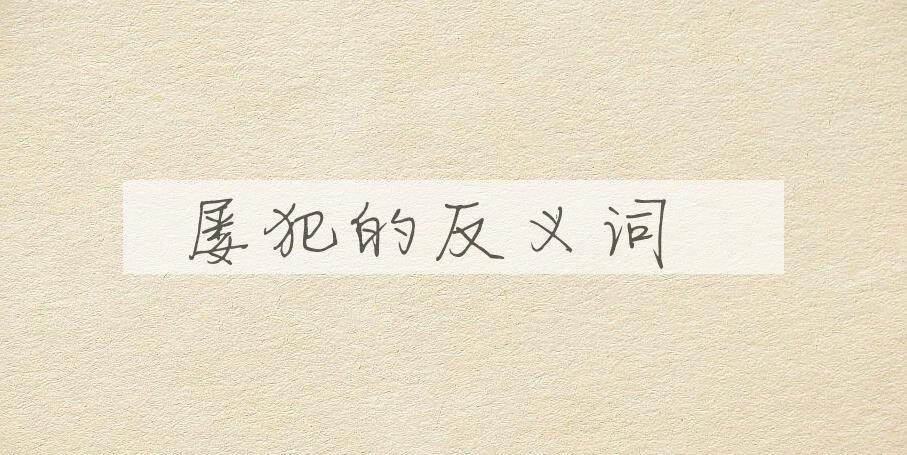 屡犯的反义词